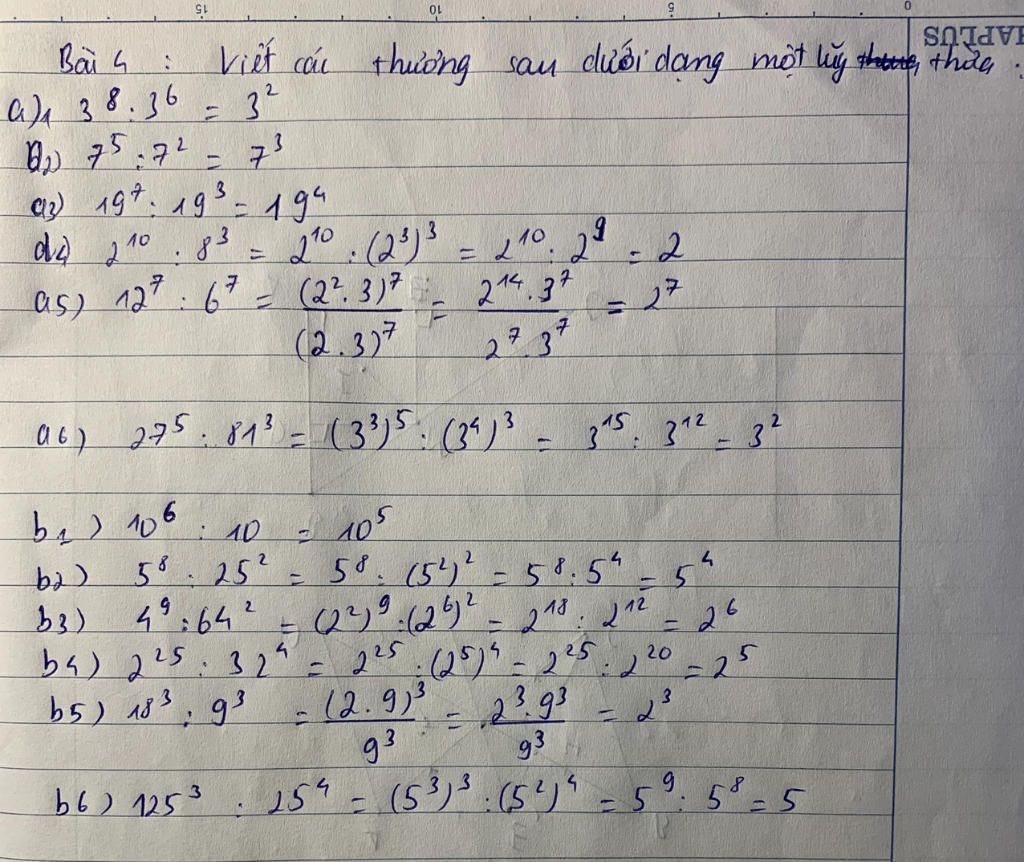 15 10 5 0
HAPLUS
Bài 4 : Viết các thương sau dưới dạng một lũy thừa :
a)1 3⁸ : 3⁶ = 3²
a2) 7⁵ : 7² = 7³
a3) 19⁷ : 19³ = 19⁴
a4) 2¹⁰ : 8³ = 2¹⁰ : (2³)³ = 2¹⁰ : 2⁹ = 2
a5) 12⁷ : 6⁷ = (2² . 3)⁷ / (2 . 3)⁷ = 2¹⁴ . 3⁷ / 2⁷ . 3⁷ = 2⁷
a6) 27⁵ : 81³ = (3³)⁵ : (3⁴)³ = 3¹⁵ : 3¹² = 3²
b1) 10⁶ : 10 = 10⁵
b2) 5⁸ : 25² = 5⁸ : (5²)² = 5⁸ : 5⁴ = 5⁴
b3) 4⁹ : 64² = (2²)⁹ : (2⁶)² = 2¹⁸ : 2¹² = 2⁶
b4) 2²⁵ : 32⁴ = 2²⁵ : (2⁵)⁴ = 2²⁵ : 2²⁰ = 2⁵
b5) 18³ : 9³ = (2 . 9)³ / 9³ = 2³ . 9³ / 9³ = 2³
b6) 125³ : 25⁴ = (5³)³ : (5²)⁴ = 5⁹ : 5⁸ = 5